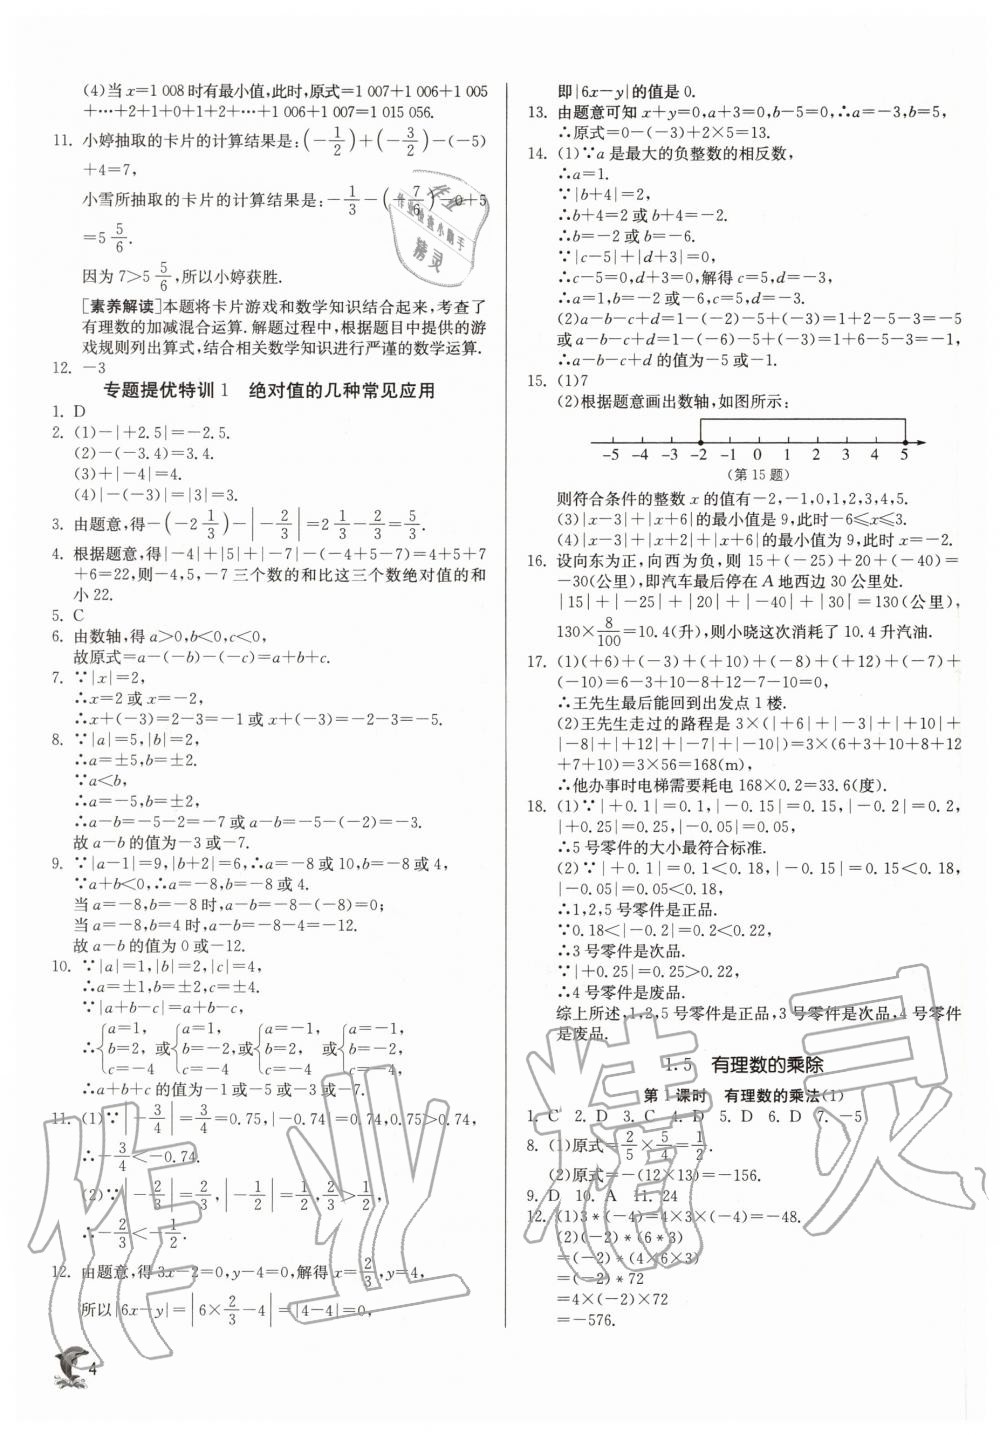 (4)当 x=1 008 时有最小值,此时,原式=1 007+1 006+1 005
+…+2+1+0+1+2+…+1 006+1 007=1 015 056.
11. 小婷抽取的卡片的计算结果是:(-1/2)+(-3/2)-(-5)
+4=7,
小雪所抽取的卡片的计算结果是:-1/3-(-7/6)-0+5
=5 5/6.
因为 7>5 5/6,所以小婷获胜.
[素养解读]本题将卡片游戏和数学知识结合起来,考查了
有理数的加减混合运算.解题过程中,根据题目中提供的游
戏规则列出算式,结合相关数学知识进行严谨的数学运算.
12. -3
专题提优特训 1 绝对值的几种常见应用
1. D
2. (1)-|+2.5|=-2.5.
(2)-(-3.4)=3.4.
(3)+|-4|=4.
(4)|-(-3)|=|3|=3.
3. 由题意,得-(-2 1/3)-|-2/3|=2 1/3-2/3=5/3.
4. 根据题意,得|-4|+|5|+|-7|-(-4+5-7)=4+5+7
+6=22,则-4,5,-7 三个数的和比这三个数绝对值的和
小22.
5. C
6. 由数轴,得 a>0,b<0,c<0,
故原式=a-(-b)-(-c)=a+b+c.
7. ∵|x|=2,
∴x=2 或 x=-2,
∴x+(-3)=2-3=-1 或 x+(-3)=-2-3=-5.
8. ∵|a|=5,|b|=2,
∴a=±5,b=±2.
∵a<b,
∴a=-5,b=±2,
∴a-b=-5-2=-7 或 a-b=-5-(-2)=-3.
故 a-b 的值为-3 或-7.
9. ∵|a-1|=9,|b+2|=6,∴a=-8 或 10,b=-8 或 4,
∵a+b<0,∴a=-8,b=-8 或 4.
当 a=-8,b=-8 时,a-b=-8-(-8)=0;
当 a=-8,b=4 时,a-b=-8-4=-12.
故 a-b 的值为 0 或-12.
10. ∵|a|=1,|b|=2,|c|=4,
∴a=±1,b=±2,c=±4.
∵|a+b-c|=a+b-c,
∴{a=1, b=2, c=-4 或{a=1, b=-2, c=-4 或{a=-1, b=2, c=-4 或{a=-1, b=-2, c=-4
∴a+b+c 的值为-1 或-5 或-3 或-7.
11. (1)∵|-3/4|=3/4=0.75,|-0.74|=0.74,0.75>0.74,
∴-3/4<-0.74.
(2)∵|-2/3|=2/3,|-1/2|=1/2,2/3>1/2,
∴-2/3<-1/2.
12. 由题意,得 3x-2=0,y-4=0,解得 x=2/3,y=4,
所以|6x-y|=|6×2/3-4|=|4-4|=0,
即|6x-y|的值是 0.
13. 由题意可知 x+y=0,a+3=0,b-5=0,∴a=-3,b=5,
∴原式=0-(-3)+2×5=13.
14. (1)∵a 是最大的负整数的相反数,
∴a=1.
∵|b+4|=2,
∴b+4=2 或 b+4=-2.
∴b=-2 或 b=-6.
∵|c-5|+|d+3|=0,
∴c-5=0,d+3=0,解得 c=5,d=-3,
∴a=1,b=-2 或-6,c=5,d=-3.
(2)a-b-c+d=1-(-2)-5+(-3)=1+2-5-3=-5
或 a-b-c+d=1-(-6)-5+(-3)=1+6-5-3=-1,
∴a-b-c+d 的值为-5 或-1.
15. (1)7
(2)根据题意画出数轴,如图所示:
-5 -4 -3 -2 -1 0 1 2 3 4 5
(第 15 题)
则符合条件的整数 x 的值有-2,-1,0,1,2,3,4,5.
(3)|x-3|+|x+6|的最小值是 9,此时-6≤x≤3.
(4)|x-3|+|x+2|+|x+6|的最小值为 9,此时 x=-2.
16. 设向东为正,向西为负,则 15+(-25)+20+(-40)=
-30(公里),即汽车最后停在 A 地西边 30 公里处.
|15|+|-25|+|20|+|-40|+|30|=130(公里),
130×8/100=10.4(升),则小晓这次消耗了 10.4 升汽油.
17. (1)(+6)+(-3)+(+10)+(-8)+(+12)+(-7)+
(-10)=6-3+10-8+12-7-10=0,
∴王先生最后能回到出发点 1 楼.
(2)王先生走过的路程是 3×(|+6|+|-3|+|+10|+
|-8|+|+12|+|-7|+|-10|)=3×(6+3+10+8+12
+7+10)=3×56=168(m),
∴他办事时电梯需要耗电 168×0.2=33.6(度).
18. (1)∵|+0.1|=0.1,|-0.15|=0.15,|-0.2|=0.2,
|+0.25|=0.25,|-0.05|=0.05,
∴5 号零件的大小最符合标准.
(2)∵|+0.1|=0.1<0.18,|-0.15|=0.15<0.18,
|-0.05|=0.05<0.18,
∴1,2,5 号零件是正品.
∵0.18<|-0.2|=0.2<0.22,
∴3 号零件是次品.
∵|+0.25|=0.25>0.22,
∴4 号零件是废品.
综上所述,1,2,5 号零件是正品,3 号零件是次品,4 号零件
是废品.
1.5 有理数的乘除
第 1 课时 有理数的乘法(1)
1. C 2. D 3. C 4. D 5. D 6. D 7. -5
8. (1)原式=2/5×5/4=1/2.
(2)原式=-(12×13)=-156.
9. D 10. A 11. 24
12. (1)3*(-4)=4×3×(-4)=-48.
(2)(-2)*(6*3)
=(-2)*(4×6×3)
=(-2)*72
=4×(-2)×72
=-576.
4
作业
作业检查小助手
精灵
作业精灵